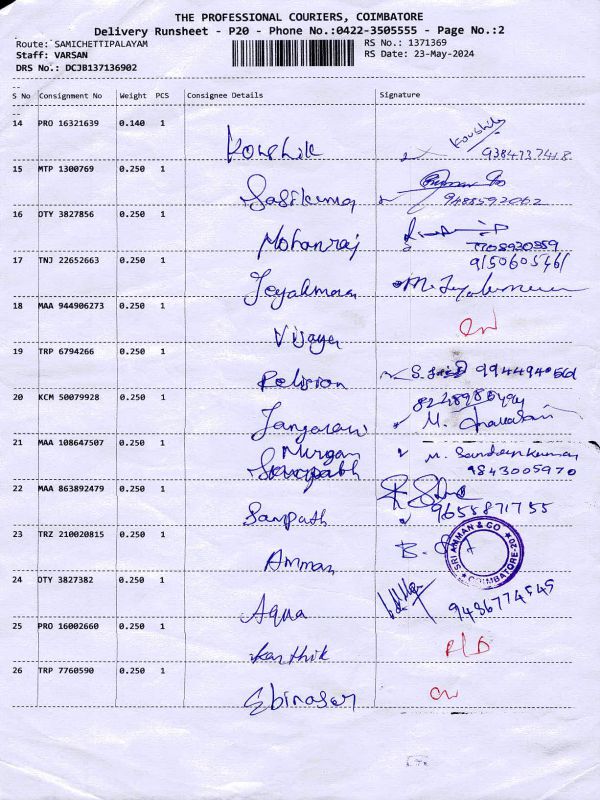 THE PROFESSIONAL COURIERS, COIMBATORE
Delivery Runsheet - P20 - Phone No.:0422-3505555 - Page No.:2
Route: SAMICHETTIPALAYAM RS No.: 1371369
Staff: VARSAN RS Date: 23-May-2024
DRS No.: DCJB137136902
S No Consignment No Weight PCS Consignee Details Signature
14 PRO 16321639 0.140 1
Koushik Koushik 9384737418
15 MTP 1300769 0.250 1
Sasikumar 9488592062
16 OTY 3827856 0.250 1
Mohanraj 7708920959
17 TNJ 22652663 0.250 1 9150605461
Jeyakmara
18 MAA 944906273 0.250 1
Vijaya
19 TRP 6794266 0.250 1
Religion
20 KCM 50079928 0.250 1
Jangaraw
21 MAA 108647507 0.250 1 M. Sandeep Kumar
Murgan 9843005970
22 MAA 863892479 0.250 1
Sampath 9655871755
23 TRZ 210020815 0.250 1
Amman SRI AMMAN & CO COIMBATORE-20
24 OTY 3827382 0.250 1
Aqua 9486774545
25 PRO 16002660 0.250 1
Karthik
26 TRP 7760590 0.250 1
Ebinasar